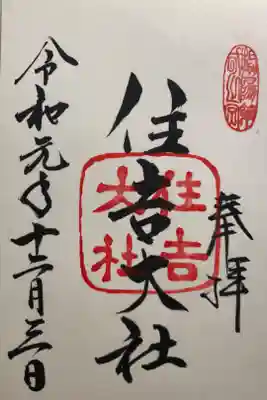 奉拝
住吉大社
住吉
大社
令和元年十二月三日